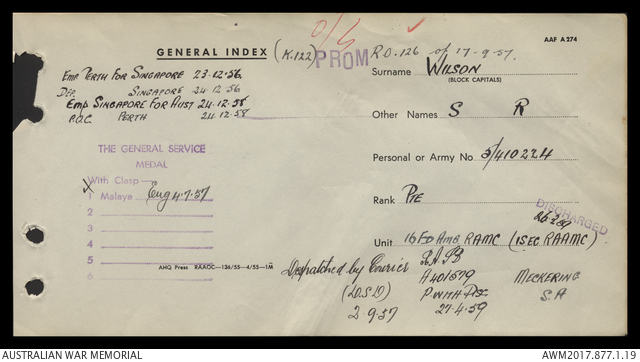 AAF A274
GENERAL INDEX (K.122) PROM R.O. 126 of 17-9-57.
O/S
Surname WILSON
(BLOCK CAPITALS)
Emp PERTH FOR SINGAPORE 23.12.56
DEP. SINGAPORE 24.12.56
Emp SINGAPORE FOR AUST 24.12.58
PERTH 24.12.58
Other Names S R
THE GENERAL SERVICE
MEDAL
With Clasp—
X 1 Malaya Eng 4.7.57
2
3
4
5
6
AHQ Press RAAOC—136/55—4/55—1M
Personal or Army No. 5/410224
Rank PTE
DISCHARGED
Unit 16 FD AMB RAMC (1SEC RAAMC)
Despatched by Courier
2-9-57
A401579
27-4-59
MECKERING
AUSTRALIAN WAR MEMORIAL
AWM2017.877.1.19